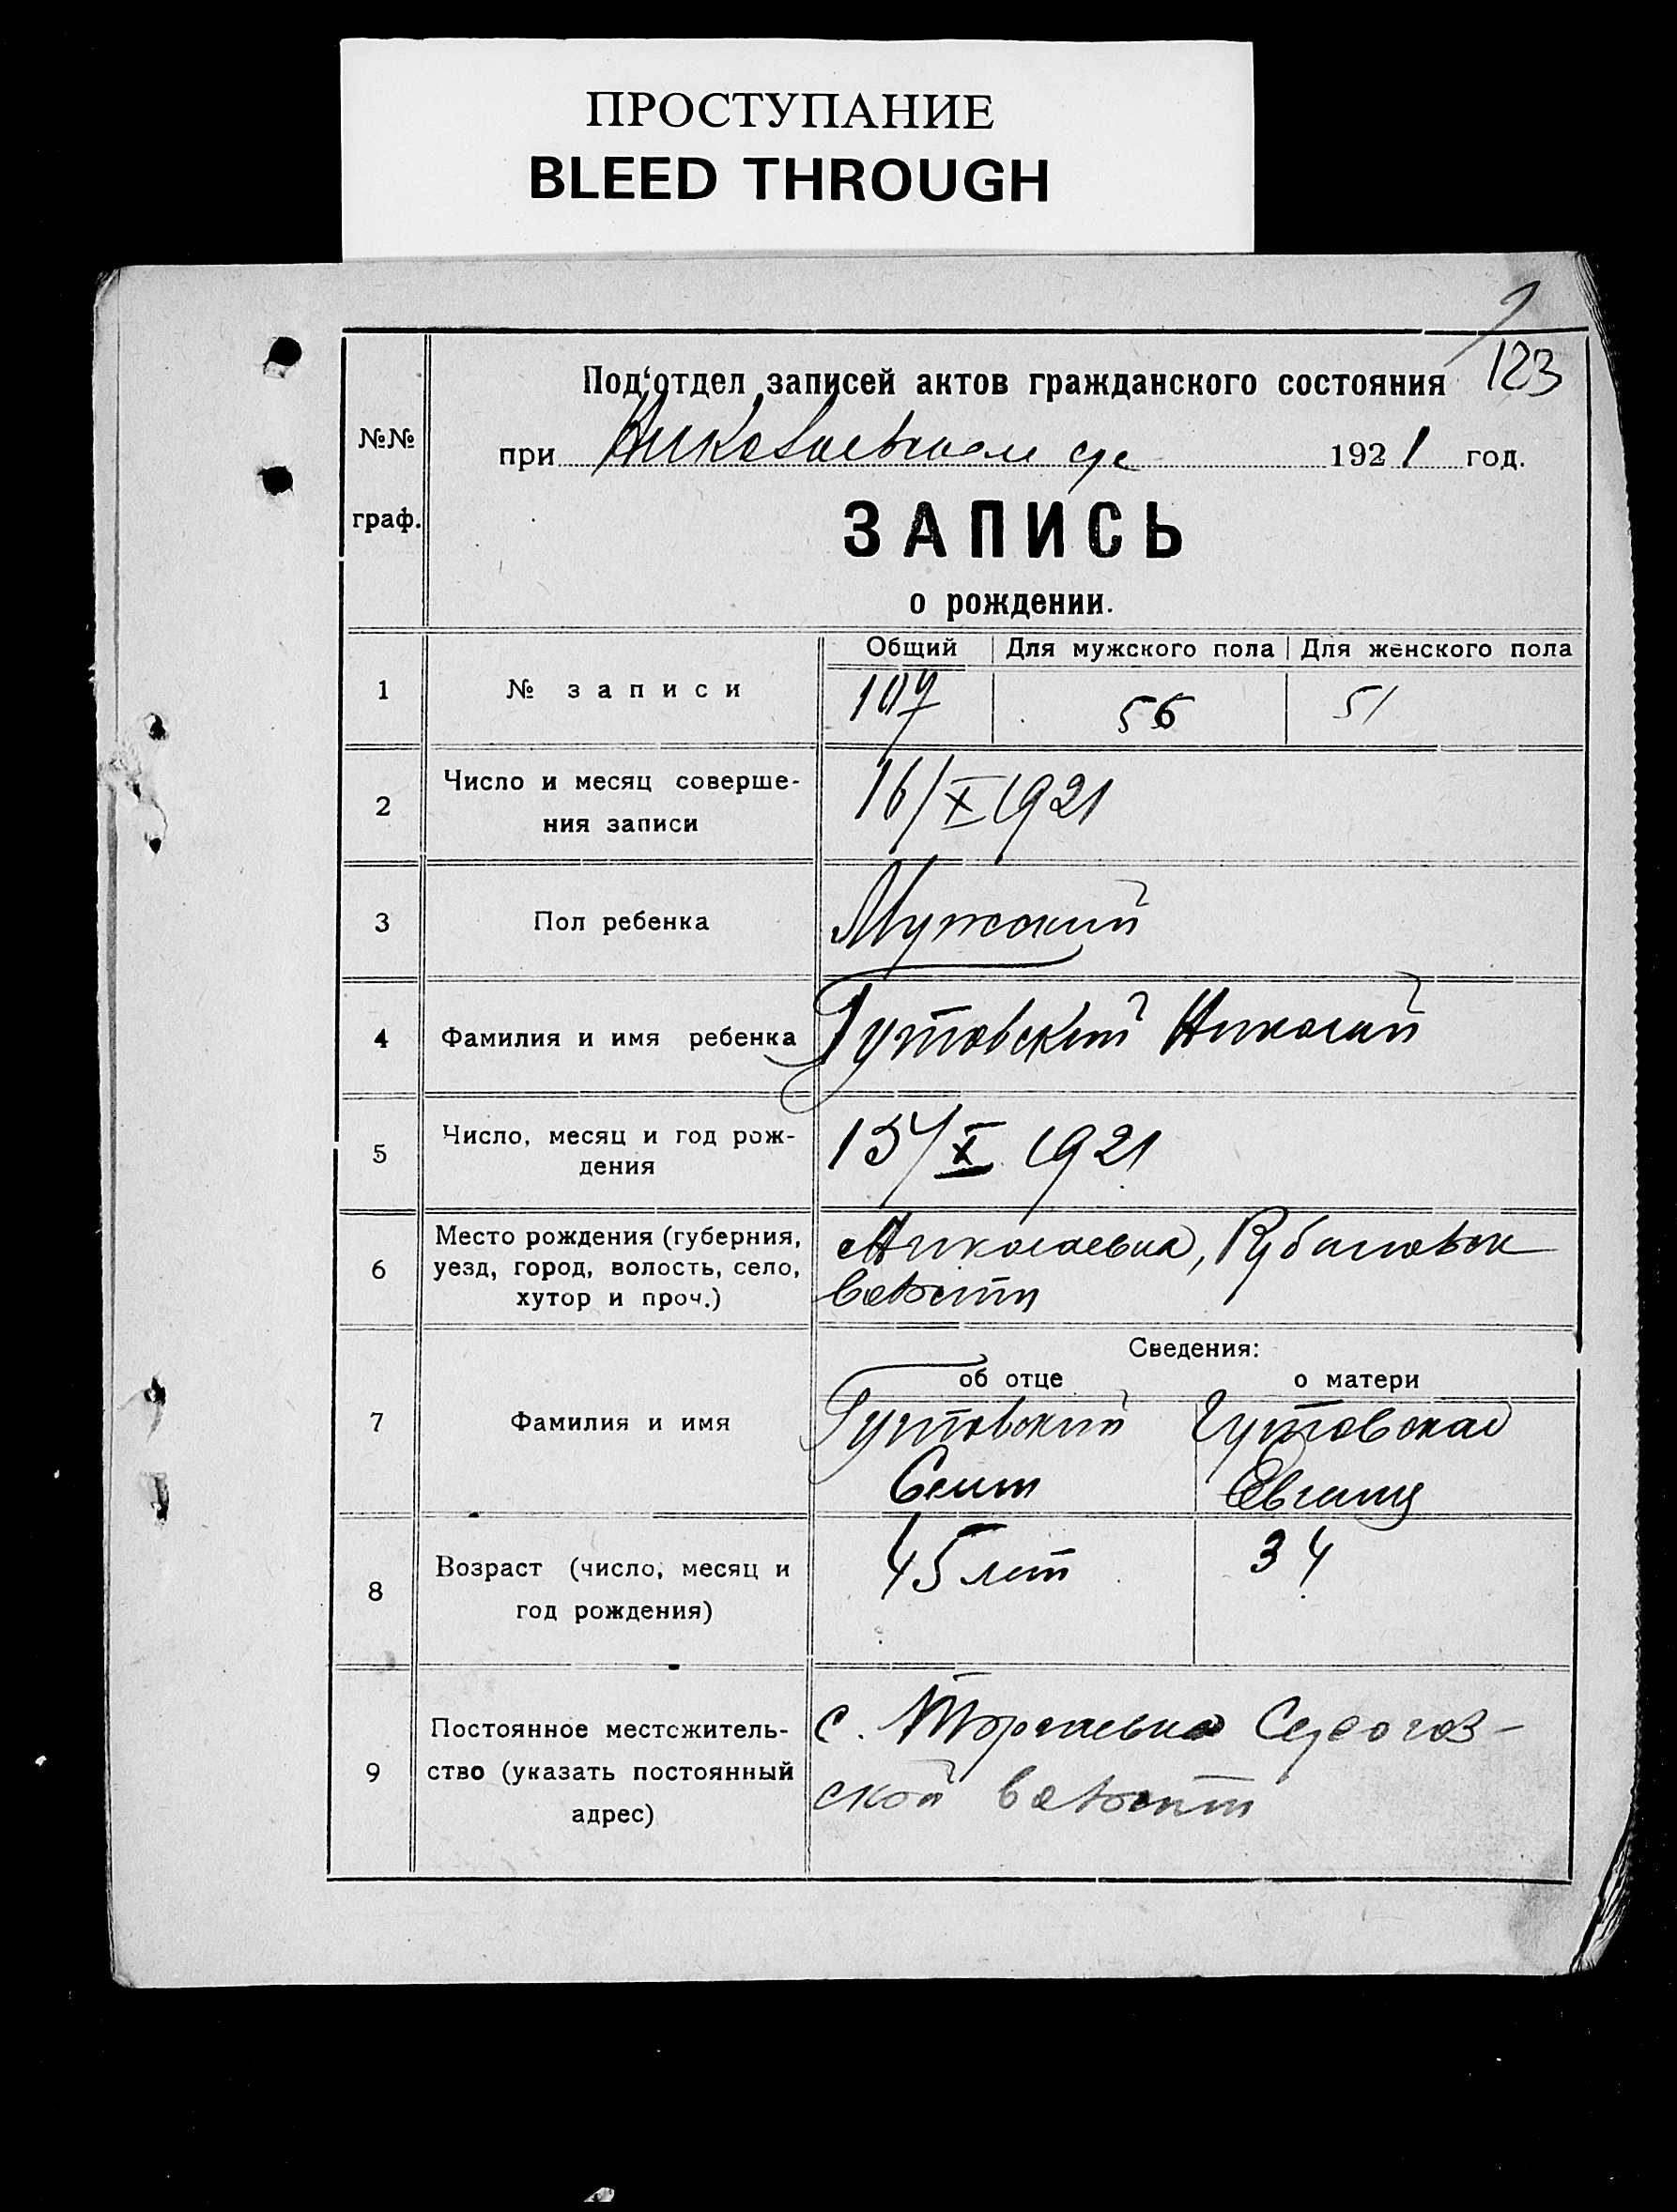 ПРОСТУПАНИЕ
BLEED THROUGH
123
Под‘отдел записей актов гражданского состояния
№№
при Николаевском 1921 год.
граф.
ЗАПИСЬ
о рождении.
Общий Для мужского пола Для женского пола
1 № записи 107 56 51
2 Число и месяц соверше-
ния записи
16/X 1921
3 Пол ребенка Мужской
4 Фамилия и имя ребенка Гутовский Николай
5 Число, месяц и год рож-
дения
15/X 1921
6 Место рождения (губерния,
уезд, город, волость, село,
хутор и проч.)
Николаевка, Рубановск
волости
Сведения:
об отце о матери
7 Фамилия и имя
Гутовский Гутовская
8 Возраст (число, месяц и
год рождения)
45 лет 34
9 Постоянное местожитель-
ство (указать постоянный
адрес)
с. Торгаевка Серогоз-
ской волости